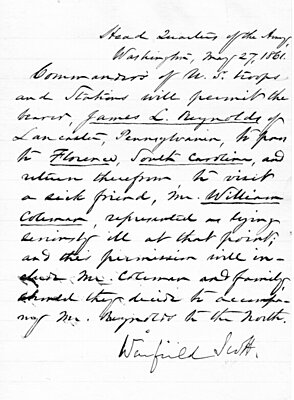 Head Quarters of the Army,
Washington, May 27, 1861.
Commanders of U. S. troops
and Stations will permit the
bearer, James L. Reynolds of
Lancaster, Pennsylvania, to pass
to Florence, South Carolina, and
return therefrom to visit
a sick friend, Mr. William
Coleman, represented as lying
seriously ill at that point;
and this permission will in-
clude Mr. Coleman and family,
should they decide to accompa-
ny Mr. Reynolds to the North.
Winfield Scott.